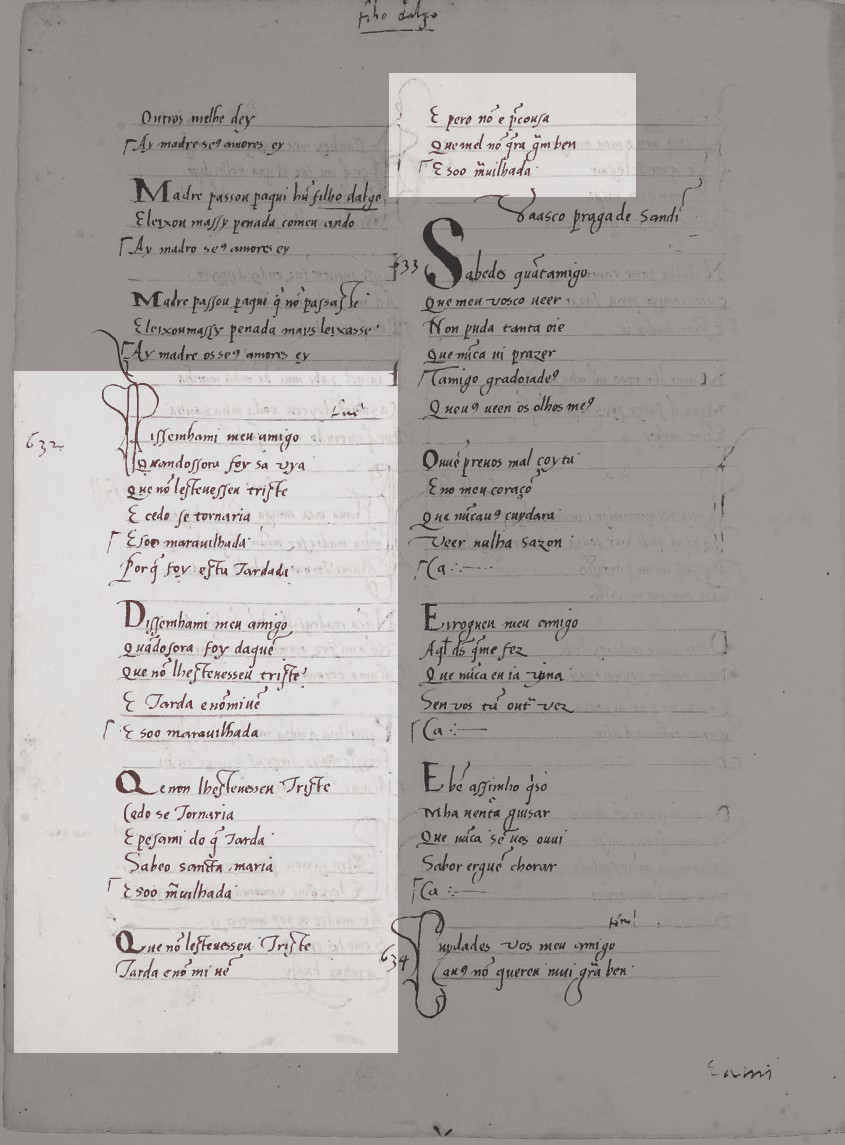 filho dalgo
Outros melhe dey
Ay madre seꝯ amores ey
Madre passou paqui hũ filho dalgo
E leixou massy penada comeu ando
Ay madro seꝯ amores ey
Madre passou paqui q̃ nõ passasse
E leixoumassy penada mays leixasse
Ay madre os seꝯ amores ey
632
Dissemhami meu amigo
Quandossora foy sa uya
Que nõ lestevesseu triste
E cedo se tornaria
E soo marauilhada
Por q̃ foy esta Tardada
Dissemhami meu amigo
Quãdosora foy daquẽ
Que nõ lhestevesseu triste
E Tarda e nõmiuẽ
E soo marauilhada
Que non lhestevesseu Triste
Cedo se Tornaria
E pesami do q̃ Tarda
Sabeo sancta maria
E soo m̃uilhada
Que nõ lestevesseu Triste
Tarda e nõ mi uẽ
E pero nõ e p̃cousa
Que mel nõ g̃ra g̃m ben
E soo m̃uilhada
Vaasco praga de Sandi
633
Sabedes quãtamigo
Que meu vosco ueer
Non puda tanta oie
Que nũca ui prazer
Tamigo gradoiadeꝯ
Q ueuꝯ ueen os olhos meꝯ
Ouuẽ prevos mal coyta
E no meu coraçõ
Que nũcauꝯ cuydara
Veer nulha sazon
Ca
E rroguen meu amigo
Aql̃ ds̃ q̃me fez
Que nũca eu ia vyna
Sen vos tũ out̃ vez
Ca
E bẽ assynho q̃so
Mha uentã guisar
Que nũca sẽ uos ouui
Sabor erguẽ chorar
Ca
634
Cuydades vos meu amigo
Cauꝯ nõ queren mui grã ben